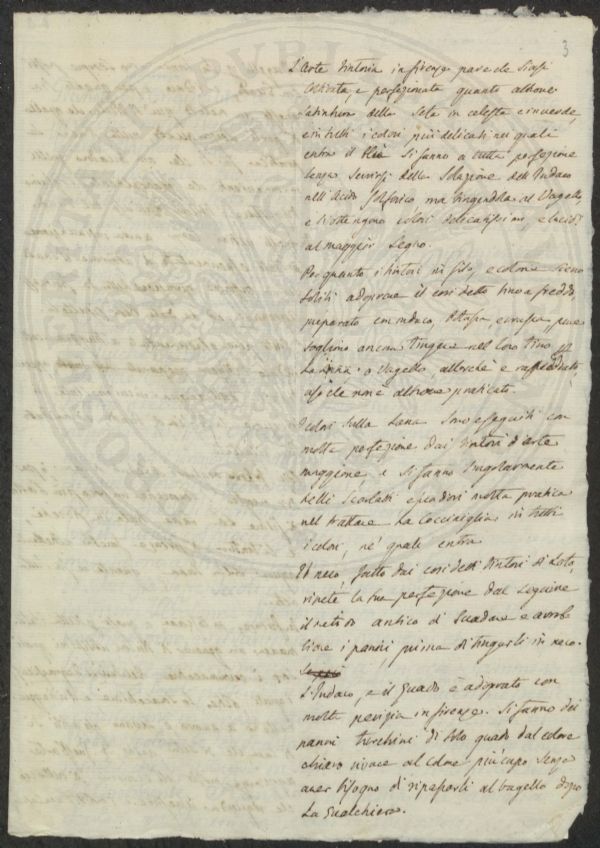 3
L'Arte tintoria in firenze pare che siasi
coltivata, e perfezionata quanto altrove
la tintura della Seta in celeste e in verde,
e in tutti i colori più delicati nei quali
entra il blù si fanno a tutta perfezione
senza servirsi della Soluzione dell'Indaco
nell'Acido Solforico ma tingendola al Vagello,
e s'ottengono colori delicatissimi, e lucidi
al maggior Segno.
Per quanto i tintori in filo, e cotone sieno
soliti adoprare il così detto tino a freddo
preparato con indaco, pure
sogliono ancora tingere nel loro tino in
Lana o Vagello, allorchè è raffreddato,
uso che non è altrove praticato.
I colori sulla Lana sono eseguiti con
molta perfezione dai tintori d'arte
maggiore, e si fanno singolarmente
belli Scarlatti essendovi molta pratica
nel trattare la Cocciniglia in tutti
i colori, ne' quali entra
Il nero, fatto dai così detti tintori di Loto,
ripete la sua perfezione dal seguire
il metodo antico di Guadare e
i panni, prima di tingerli in nero.
L'Indaco, e il Guado è adoprato con
molta perizia in firenze. Si fanno dei
panni turchini di solo guado dal colore
chiaro vivace al colore più cupo senza
aver bisogno di ripassarli al vagello dopo
La Gualchiera.